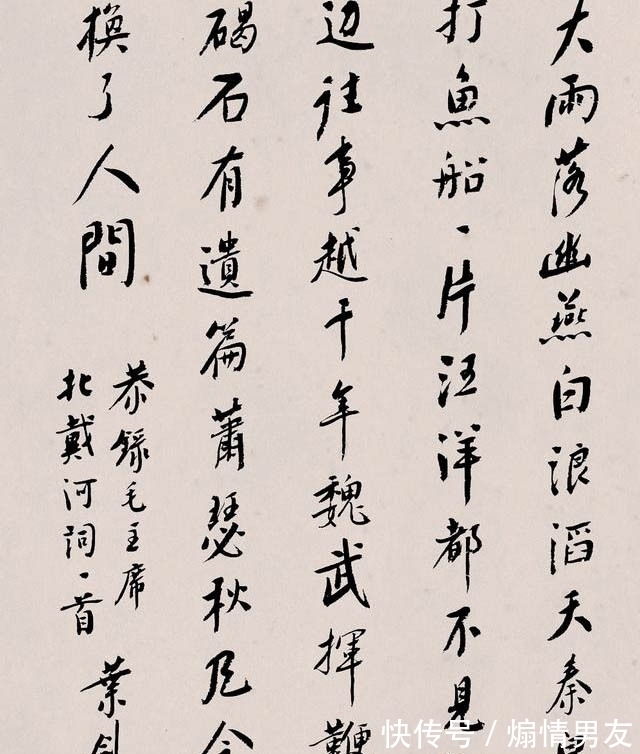 大雨落幽燕白浪滔天秦
打魚船一片汪洋都不見
边往事越千年魏武揮鞭
碣石有遺篇蕭瑟秋風今
換了人間
恭錄毛主席
北戴河詞一首
葉
快传号／煽情男友